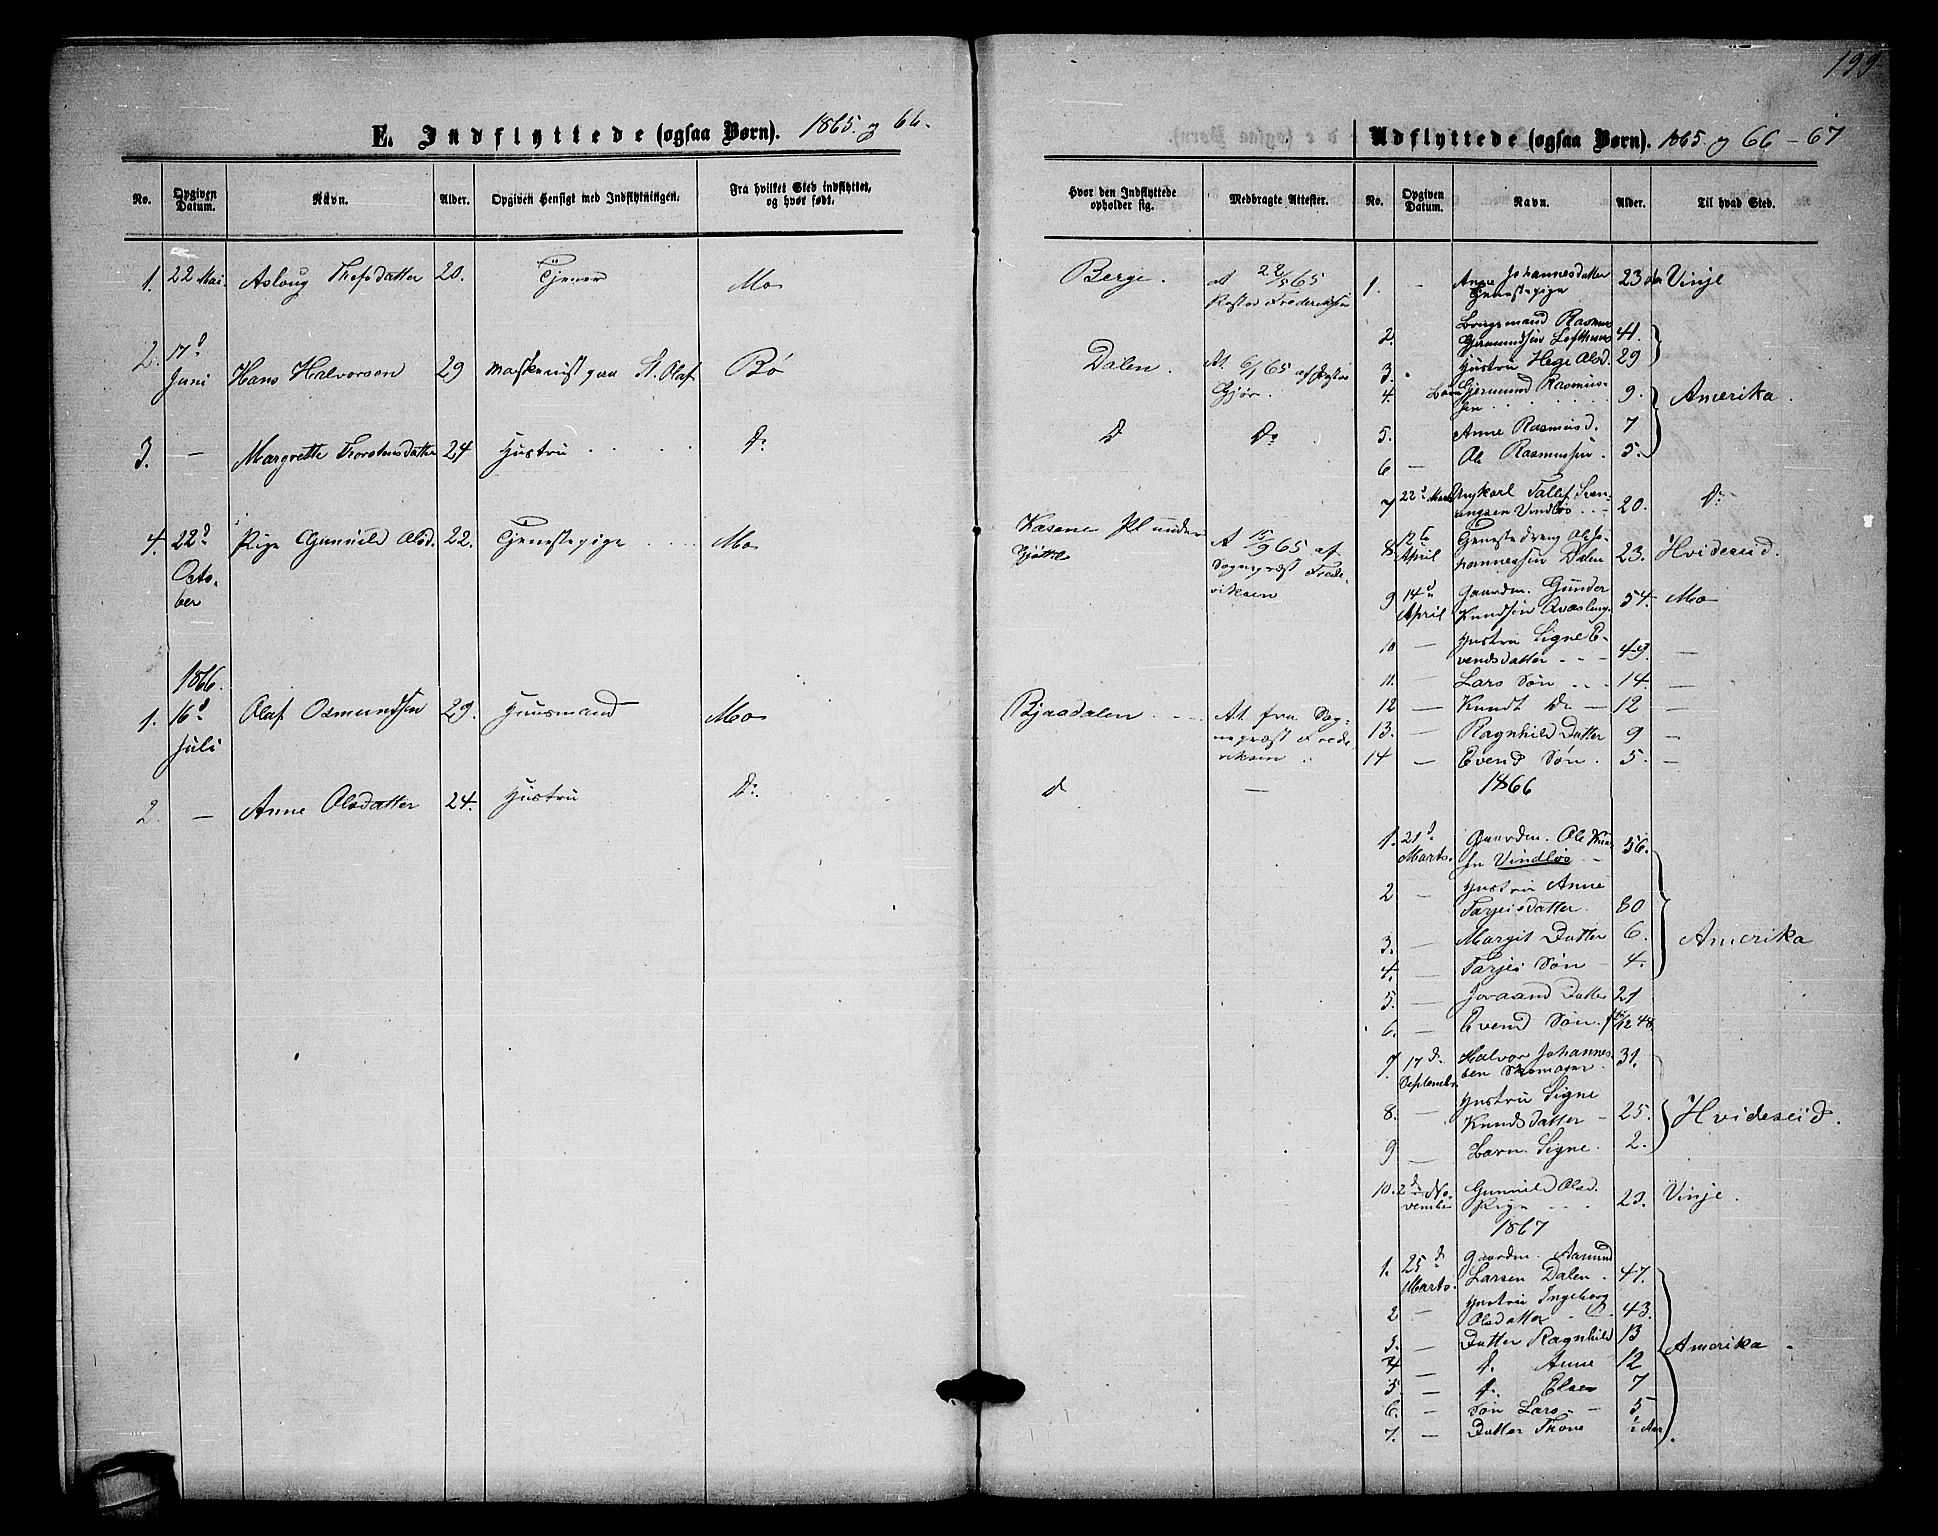 199
E. Indflyttede (ogsaa Børn). 1865 og 66.
No. Opgiven Datum. Navn. Alder. Opgiven Hensigt med Indflytningen. Fra hvilket Sted indflyttet, og hvor født. Hvor den Indflyttede opholder sig. Medbragte Attester.
1. 22 Mai. Asloug Olefsdatter 20. Tjener Mo Berge. 22/5 65
Pastor Frederiksen
2. 17d
Juni Hans Halvorsen 29 Maskenist paa St. Olaf Bø Dalen. At. 6/1 65 af Pastor
Gjør.
3. — Margrethe Thorstensdatter 24 Hustru D: D D:
4. 22d Pige Gunuld Olsd. 22. Tjenestepige Mo Kasene Pl under
Octo-
ber
At 15/9 65 af
Sognepræst Frede-
riksen
1866.
1. 16d Olaf Osmundsen 29. Huusmand Mo Bjaadalen At fra Sog-
Juli
nepræst Frede-
riksen
2. — Anne Olsdatter 24. Hustru D: d —
Udflyttede (ogsaa Børn). 1865 og 66 - 67
No. Opgiven Datum. Navn. Alder. Til hvad Sted.
1. — Anne Johannesdatter
Tjenestepige 23 Vinje
2. Rasmus
Gjermundsen Lofthuus 41.
3. Hustru Hege Olsd. 29
4. Børn Gjermund Rasmus-
sen 9. Amerika.
5. Anne Rasmusd. 7
6 — Ole Rasmussen 5.
7 22d Marts Ungkarl Tallef Sven-
ungsen Vindløs 20. D:
8 12te
April Tjenestedreng Ole Jo-
hannessen Dalen 23. Hvideseid.
9 14d
April Gaardm. Gunder
Knudsen 54. Mo
10 — Hustru Signe E-
vendsdatter 49. —
11. — Lars Søn 14. —
12 — Knudt Do — 12 —
13. — Ragnhild Datter 9 —
14 — Evend Søn. 5. —
1866
1. 21d
Marts. Gaardm. Ole Knud-
sen Vindløs 56.
2 — Hustru Anne
Tarjeisdatter. 30
3. — Margit Datter 6. Amerika
4. — Tarjei Søn 4.
5. — Joraand Datter 21
6. — Evend Søn. 12 48
7. 17d
Septembr. Halvor Johannes-
sen Skomager. 31.
8. — Hustru Signe
Knudsdatter 25. Hvideseid.
9 — Barn. Signe. 2.
10. 2d No-
vember Gunuld Olsd.
Pige 23. Vinje.
1867
1. 25d
Marts. Gaardm. Aamund
Larsen Dalen. 47.
2 — Hustru Ingeborg
Olsdatter 43.
3. — Datter Ragnhild 13 Amerika
4 — d. Anne 12
5. — d. Else 7
6. — Søn Lars 5
7. — Datter Thone